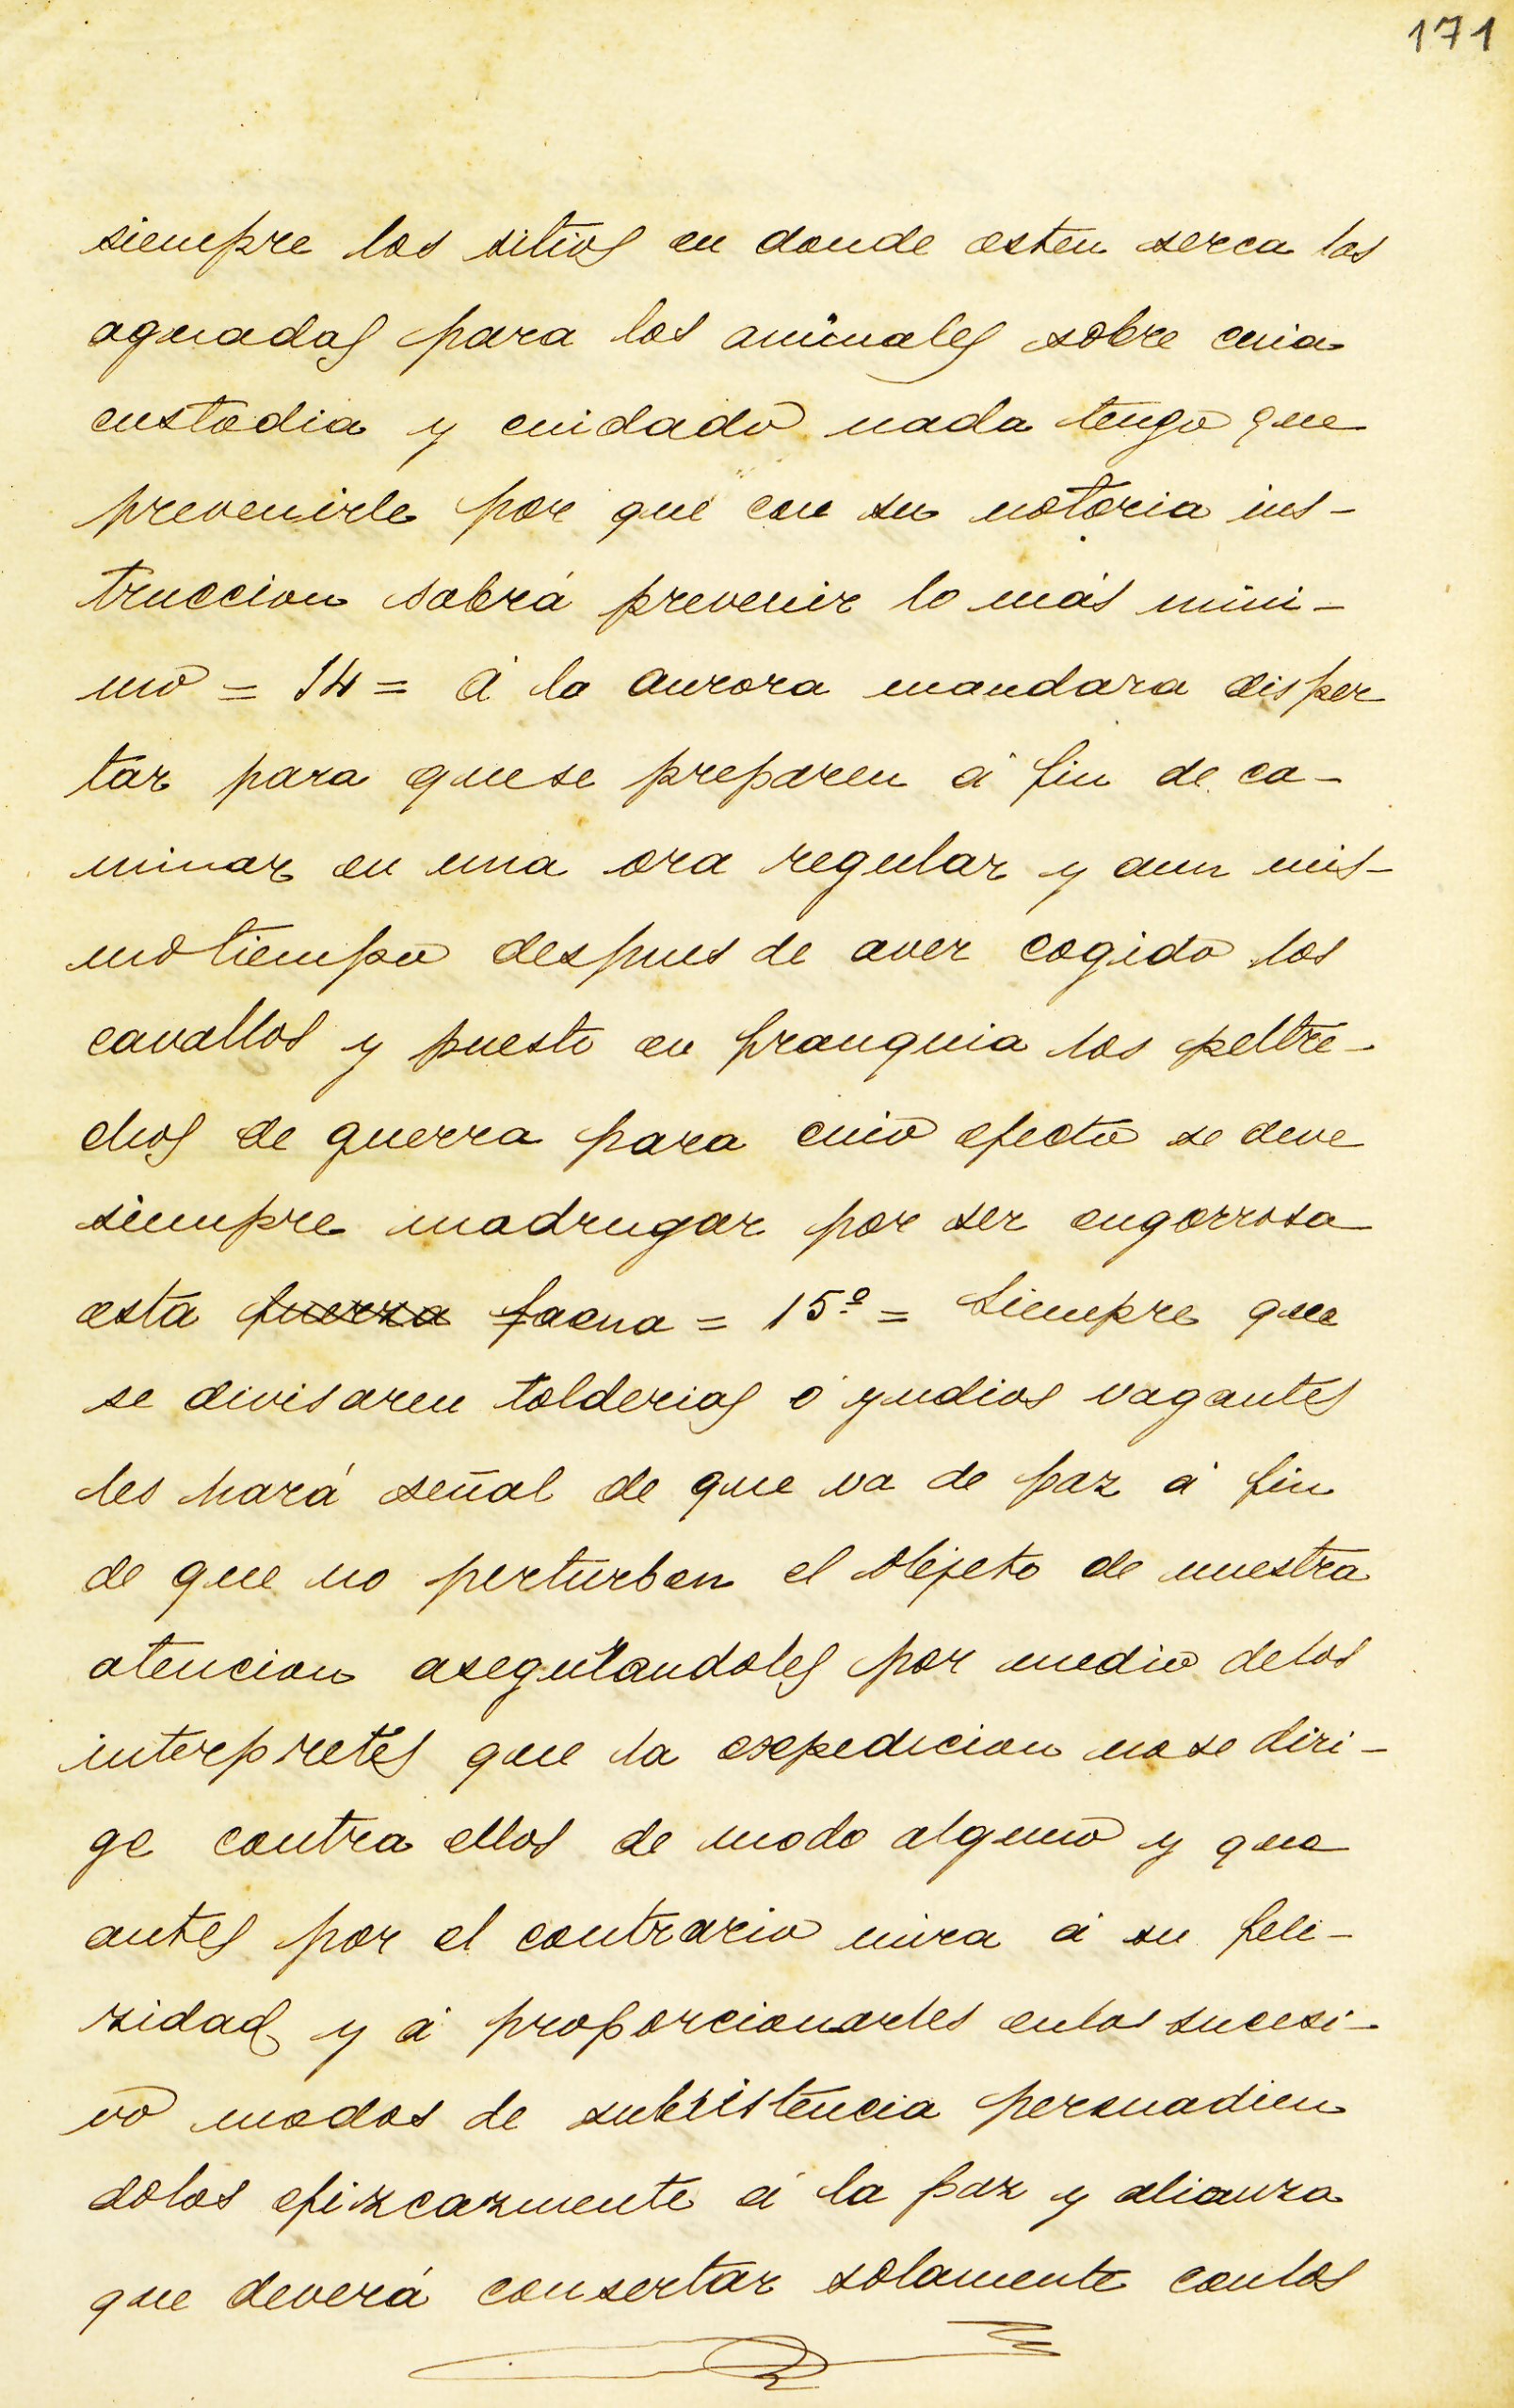 171
siempre los sitios en donde esten serca las
aguadas para los animales sobre cuia
custodia y cuidado nada tengo que
prevenirle por que con su notoria ins-
truccion sabrá prevenir lo más mini-
mo = 14 = á la aurora mandara disper
tar para quese preparen á fin de ca-
minar en una ora regular y aun mis-
motiempo despues de aver cogido los
cavallos y puesto en franquia los peltre-
chos de guerra para cuio efecto se deve
siempre madrugar por ser engorrosa
esta fuerza faena = 15º = Siempre que
se divisaren tolderias ó yndios vagantes
les hará señal de que va de paz á fin
de que no perturben el objeto de nuestra
atencion asegurandoles por medio delos
interpretes que la expedicion nose diri-
ge contra ellos de modo alguno y que
antes por el contrario mira á su feli-
zidad y á proporcionarles enlos sucesi-
vo modos de subsistencia persuadien
dolos efizcazmente á la paz y alianza
que deverá consertar solamente conlos